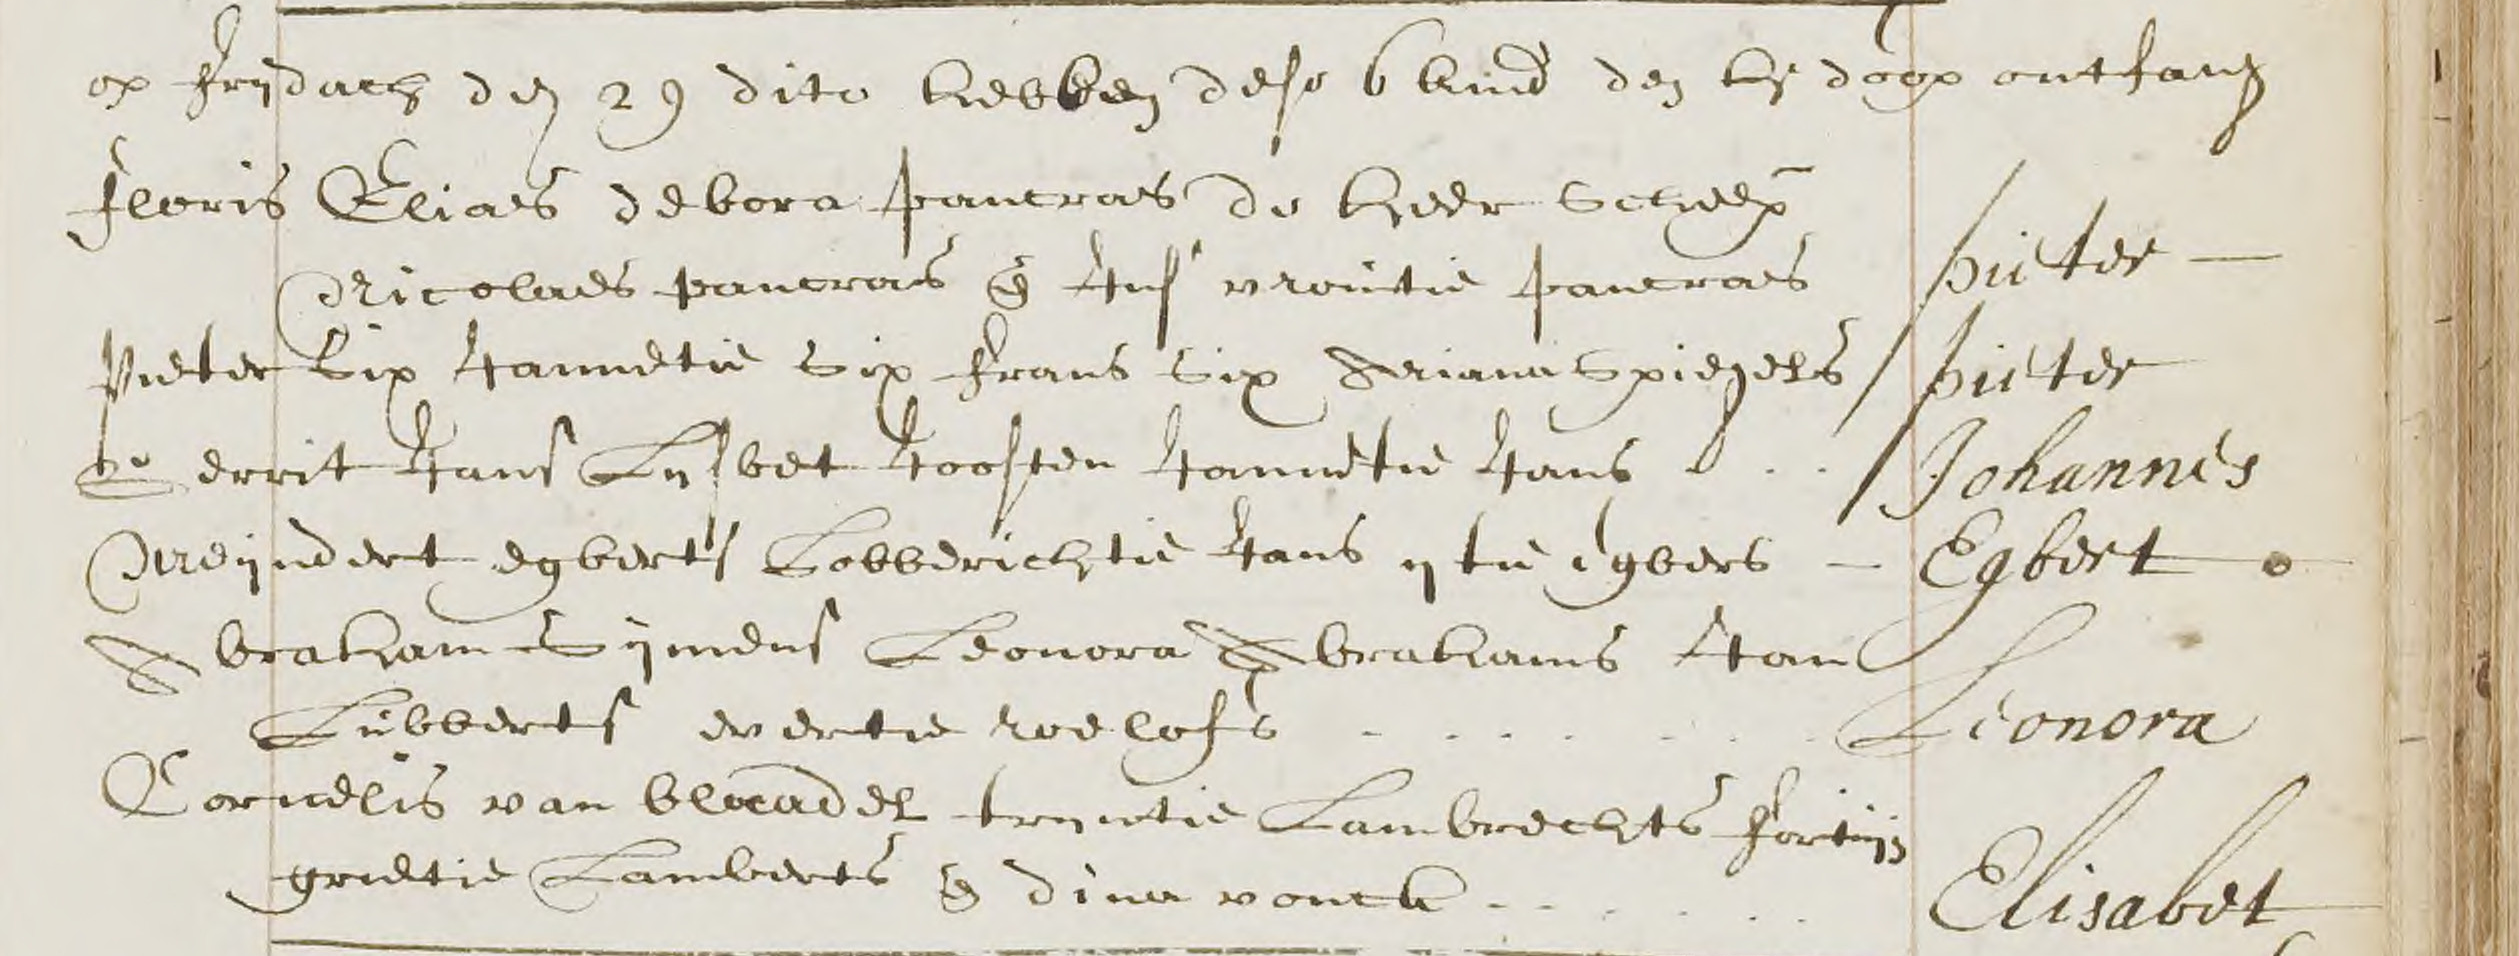 op frijdach den 29 dito hebben dese 6 kind den hŷ doop ontfang
floris Eliaes debora pancraes de heer Scheep
Nicolaes pancras & Juf vrouwtie pancraes Pieter
Pieter Six Jannetie Six frans Six Ariana Spiegels Pieter
Gerrit Jans Lijsbet Joosten Jannetie Jans Johannes
Meijndert egberts Lobberichtie Jans ytie Egbers Egbert
Abraham Sijmens Leonora Abrahams Jan
Lubberts evertie roelofs Leonora
Cornelis van trijntie Lambrechts fortijn
grietie Lamberts & dina vonck Elisabet